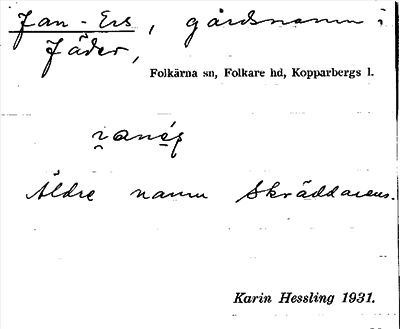 Jan-Ers, gårdsnamn i
Jäder,
Folkärna sn, Folkare hd, Kopparbergs l.
Äldre namn Skräddarens.
Karin Hessling 1931.